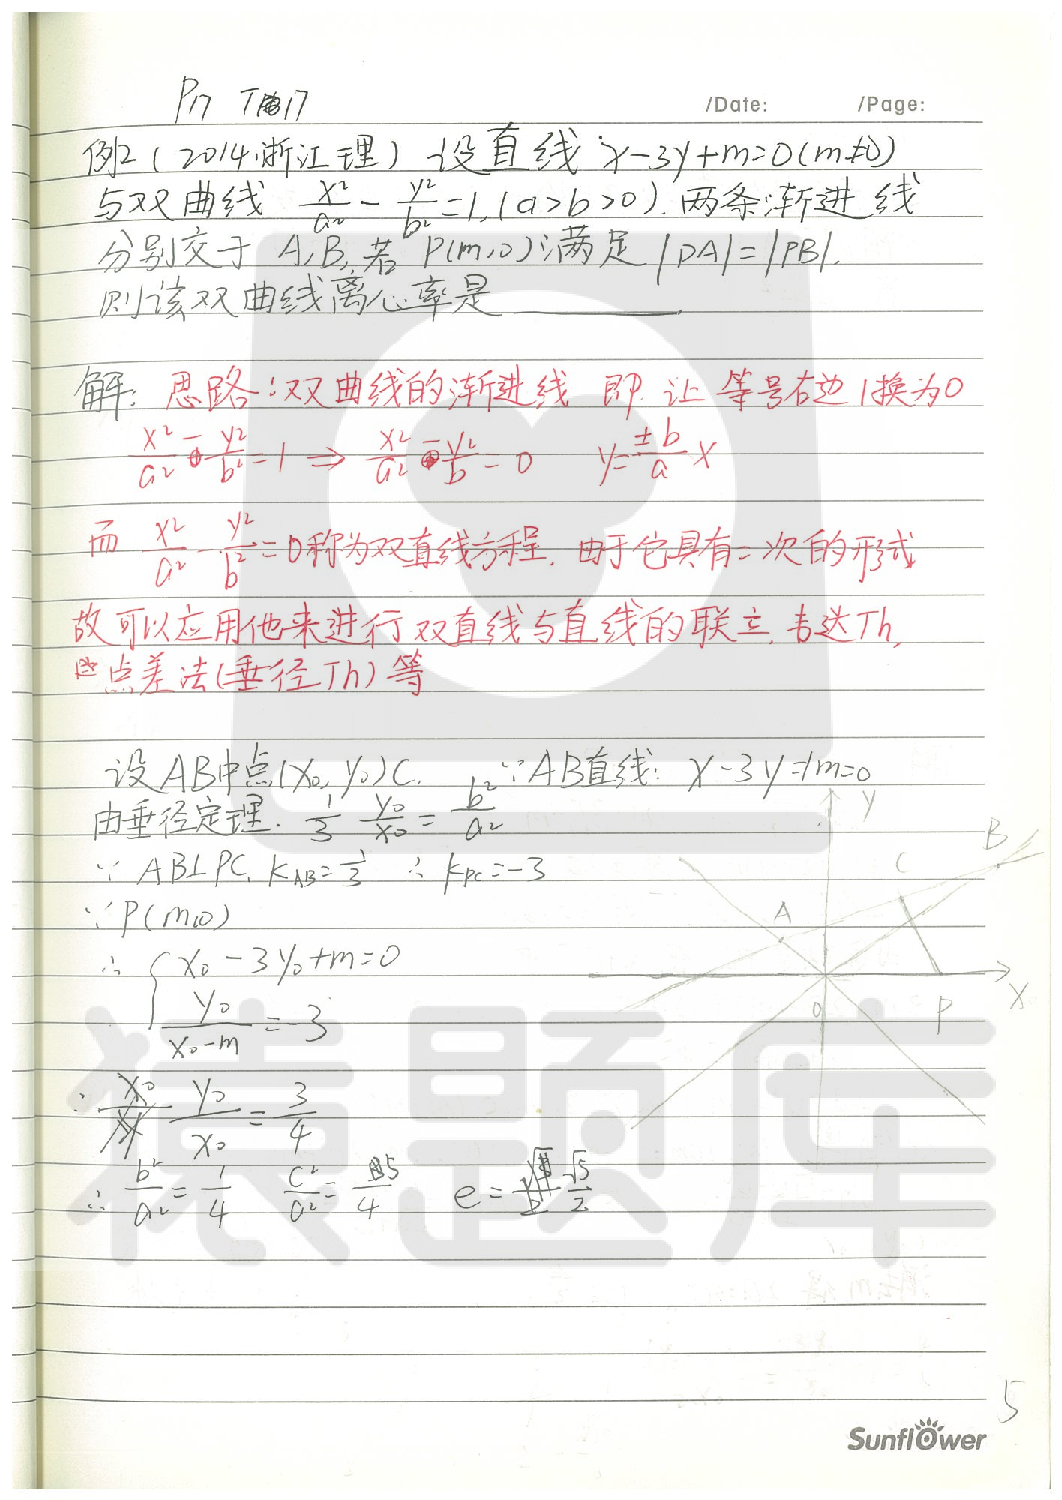 P17 T17
/Date: /Page:
例2 (2014·浙江理) 设直线 x-3y+m=0(m≠0)
与双曲线 x²/a² - y²/b² =1,(a>b>0).两条渐进线
分别交于 A,B,若 P(m,0)满足 |PA|=|PB|.
则该双曲线离心率是______.
解: 思路:双曲线的渐进线 即 让 等号右边1换为0
x²/a² - y²/b² = 1 ⇒ x²/a² - y²/b = 0 y=±b/a x
而 x²/a² - y²/b² =0称为双直线方程. 由于它具有二次的形式
故可以应用他来进行双直线与直线的联立,韦达Th,
点差法(垂径Th)等
设AB中点(x₀,y₀)C. ∵AB直线: x-3y+m=0
由垂径定理. 1/3 y₀/x₀ = b²/a²
∵ AB⊥PC, K_AB=1/3 ∴ K_PC=-3
∵P(m,0)
∴ { x₀-3y₀+m=0
y₀/(x₀-m) = 3
∴ y₀/x₀ = 3/4
∴ b²/a² = 1/4 c²/a² = 5/4 e = √5/2
y
B
C
A
O
P
x
猿题库
5
Sunflower